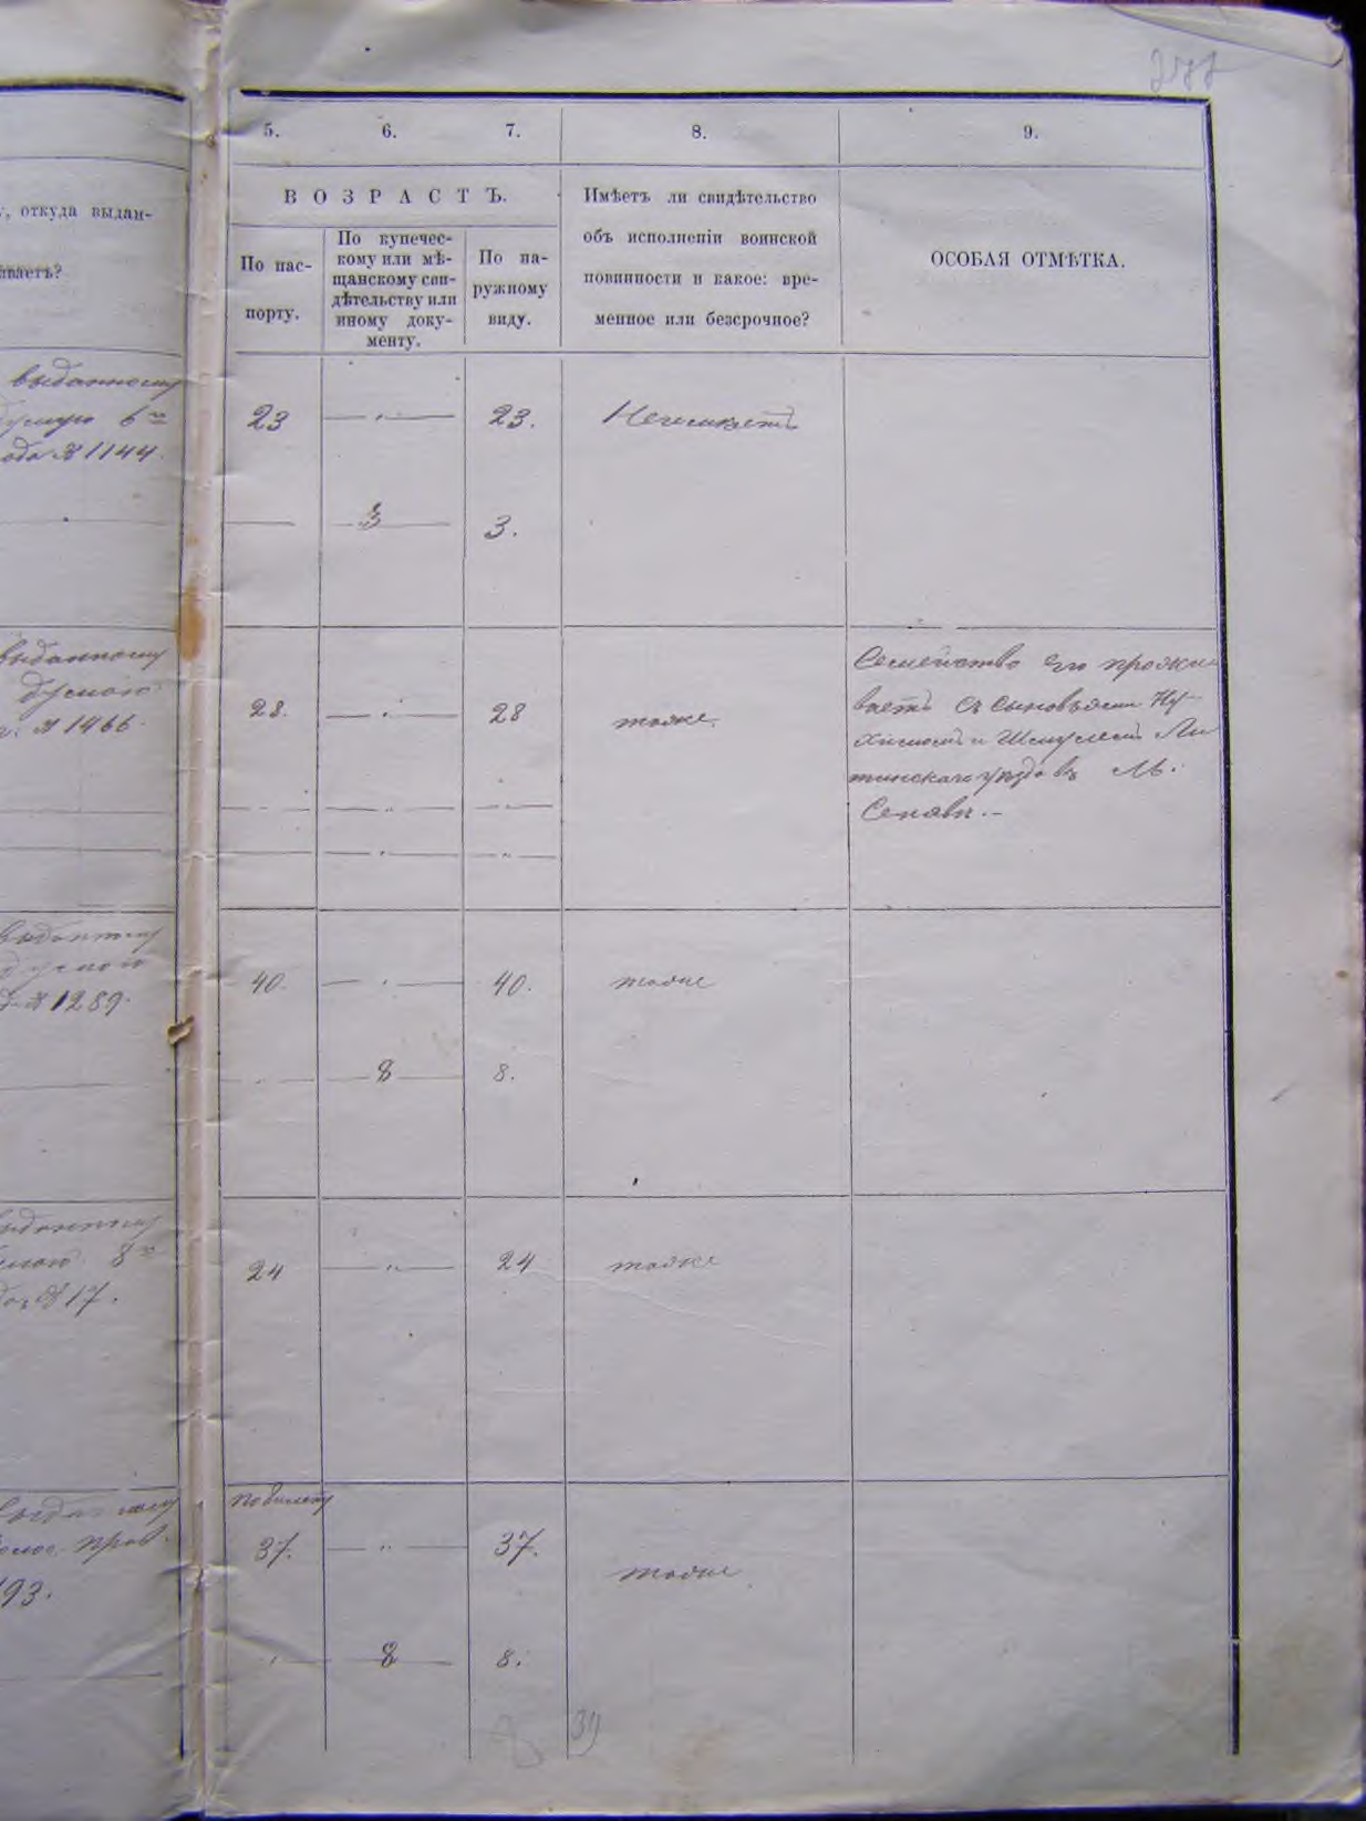 277
5. 6. 7. 8. 9.
, откуда выдан-
ваетъ?
ВОЗРАСТЪ.
По пас-
порту.
По купечес-
кому или мѣ-
щанскому сви-
дѣтельству или
иному доку-
менту.
По на-
ружному
виду.
Имѣетъ ли свидѣтельство
объ исполненіи воинской
повинности и какое: вре-
менное или безсрочное?
ОСОБАЯ ОТМѢТКА.
выданному
6го
ода № 1144.
23 — " — 23. Неимѣетъ
— 3 3.
выданному
думою
№ 1466.
28. — " — 28 тоже.
Семейство его прожи
ваетъ съ сыновьями Ну
химомъ и Шмулемъ Ли
тинскаго уѣзда въ М.
Сенявѣ.—
выданному
думою
№ 1289.
40. — " — 40. тоже
8 8.
выданному
8го
№ 17.
24 — " — 24 тоже
по билету
прав.
93.
37. — " — 37. тоже
8 8.
39